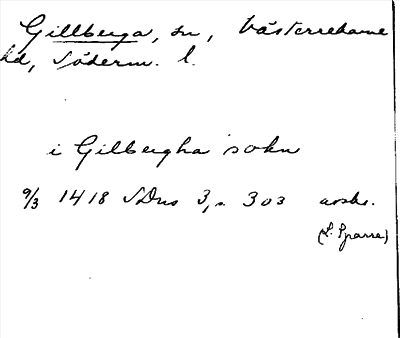 Gillberga, sn, Västerrekarne
hd, Söderm. l.
i Gilbergha sokn
9/3 1418 SDns 3, s. 303 avskr.
(L. Sparre)